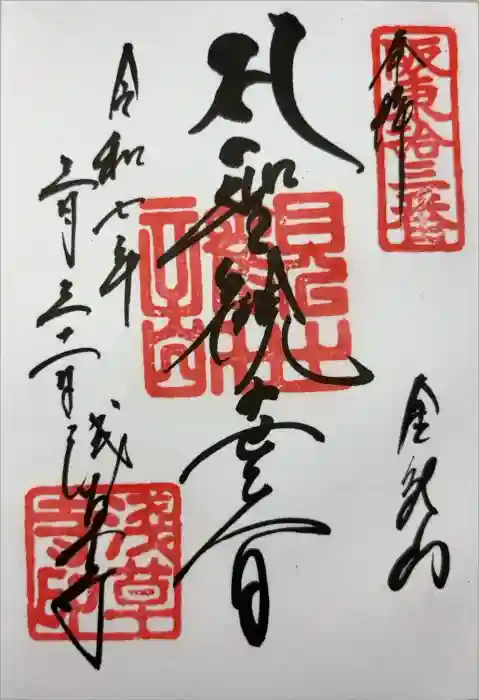 奉拝
阪東拾三番
金龍山
聖観世音
令和七年
三月三十一日
浅草寺
浅草寺印